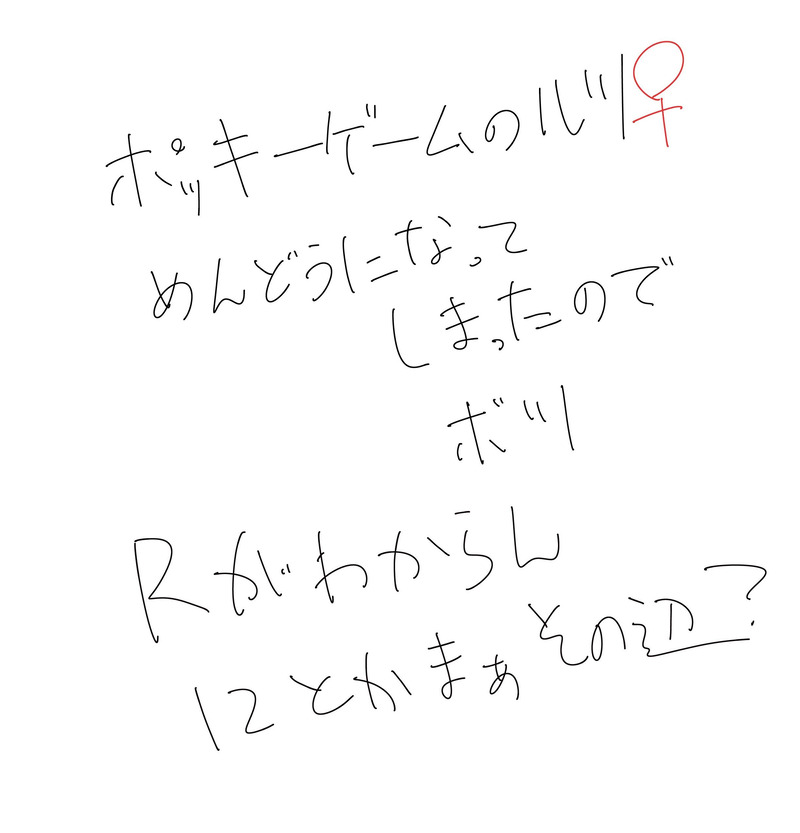 ポッキーゲームのルツ♀
めんどうになって
しまったので
ボツ
Rがわからん
12とかまぁその辺?